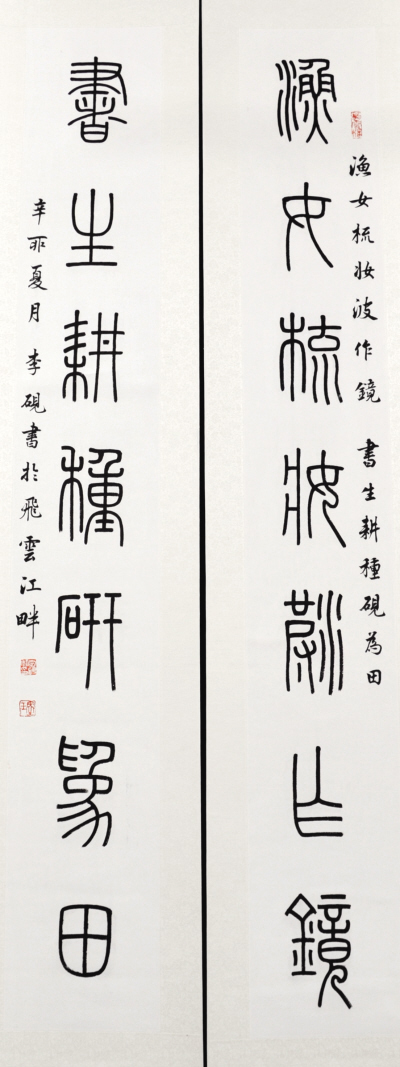 漁女梳妝波作鏡 書生耕種硯為田
漁女梳妝波作鏡
書生耕種研為田
辛丑夏月李硯書於飛雲江畔